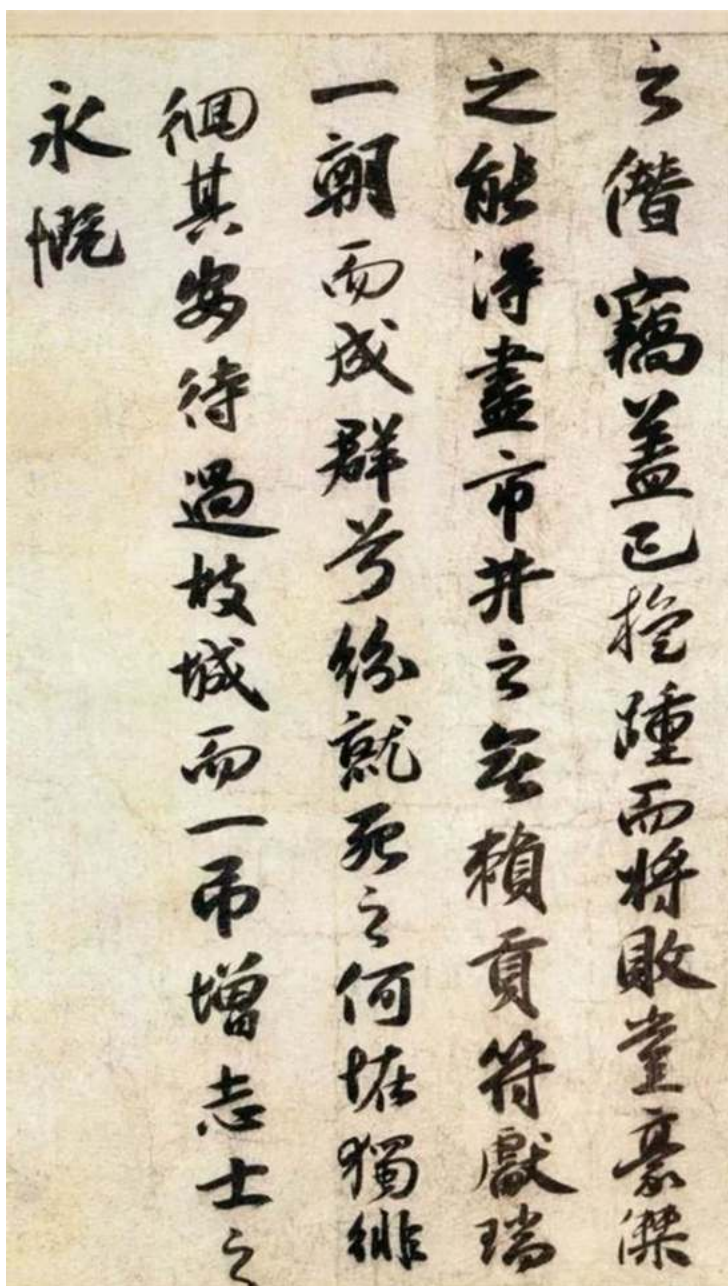 之僭竊蓋已旋踵而將敗豈豪傑
之能得盡市井之無賴貢符獻瑞
一朝而成群兮紛就死之何恠獨徘
徊其安待過故城而一吊增志士之
永慨